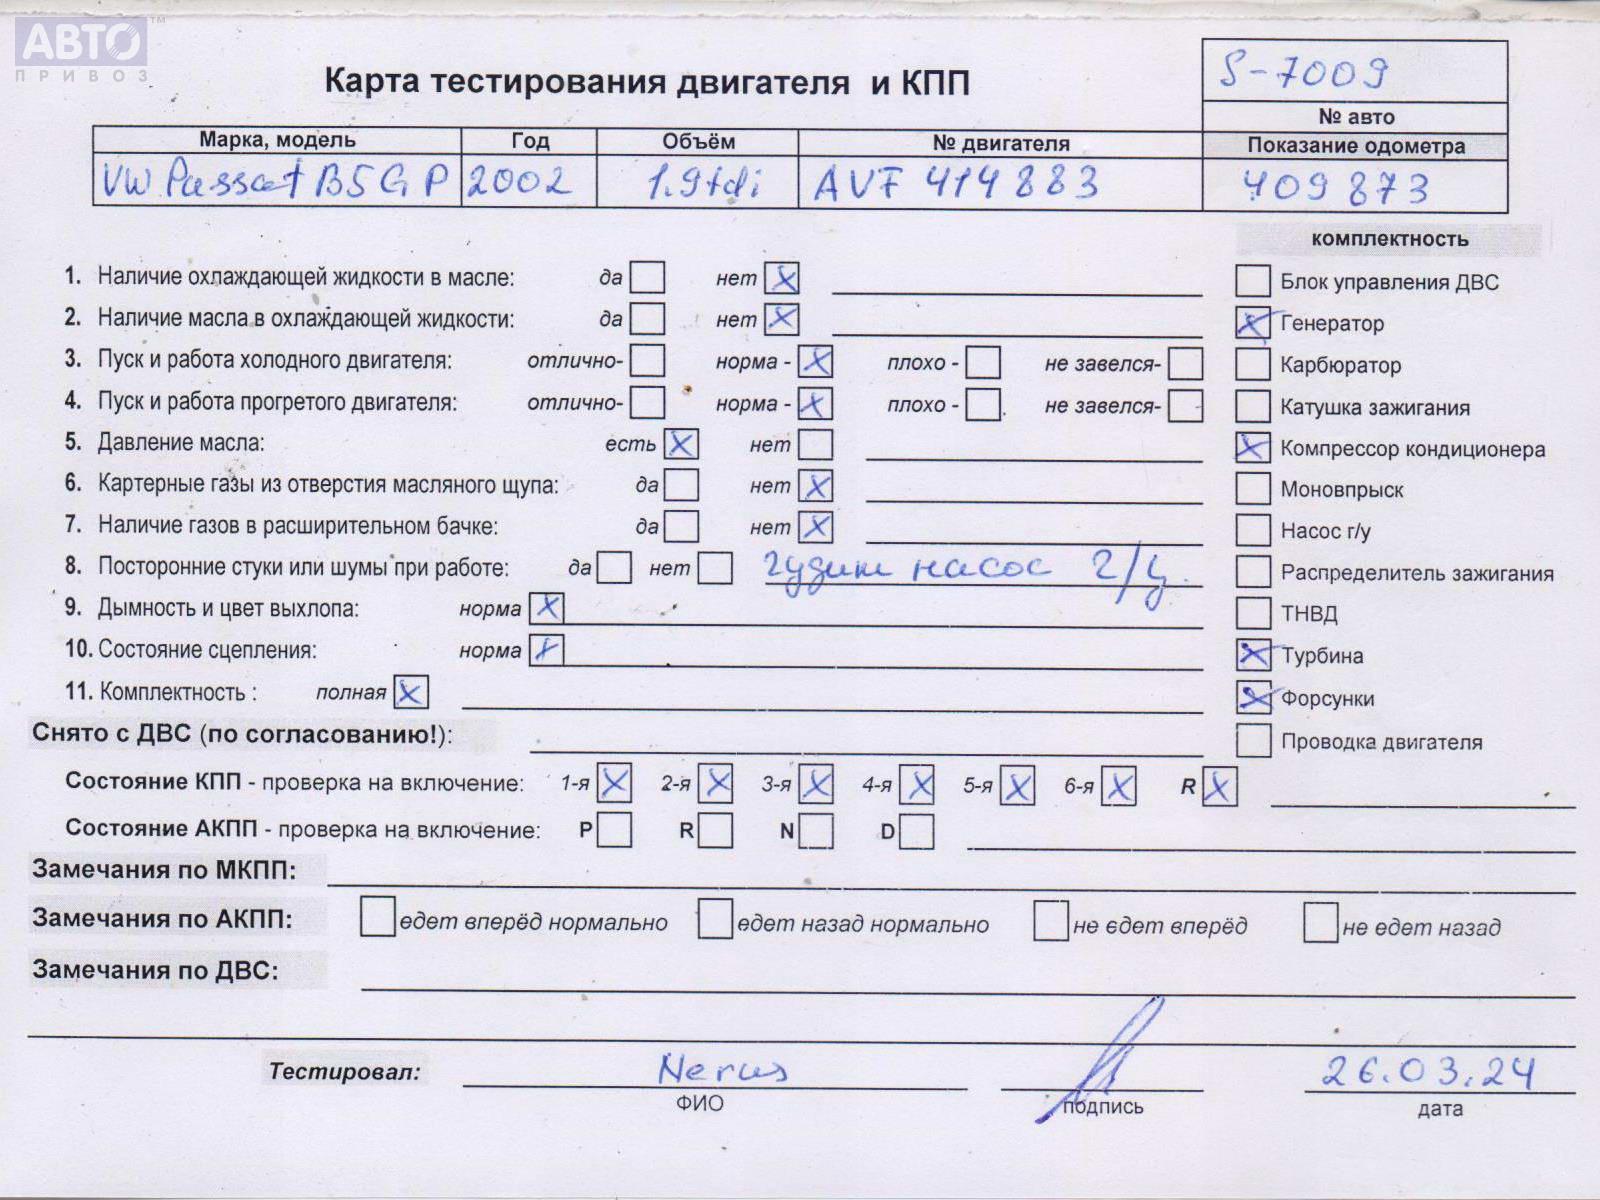 АВТО ™
ПРИВОЗ
Карта тестирования двигателя и КПП
S-7009
№ авто
Марка, модель Год Объём № двигателя Показание одометра
VW Passat B5GP 2002 1.9tdi AVF 414883 409873
комплектность
1. Наличие охлаждающей жидкости в масле: да нет X
Блок управления ДВС
2. Наличие масла в охлаждающей жидкости: да нет X
X Генератор
3. Пуск и работа холодного двигателя: отлично- норма - X плохо - не завелся-
Карбюратор
4. Пуск и работа прогретого двигателя: отлично- норма - X плохо - не завелся-
Катушка зажигания
5. Давление масла: есть X нет
X Компрессор кондиционера
6. Картерные газы из отверстия масляного щупа: да нет X
Моновпрыск
7. Наличие газов в расширительном бачке: да нет X
Насос г/у
8. Посторонние стуки или шумы при работе: да нет гудит насос г/у.
Распределитель зажигания
9. Дымность и цвет выхлопа: норма X
ТНВД
10. Состояние сцепления: норма X
X Турбина
11. Комплектность : полная X
X Форсунки
Снято с ДВС (по согласованию!):
Проводка двигателя
Состояние КПП - проверка на включение: 1-я X 2-я X 3-я X 4-я X 5-я X 6-я X R X
Состояние АКПП - проверка на включение: P R N D
Замечания по МКПП:
Замечания по АКПП: едет вперёд нормально едет назад нормально не едет вперёд не едет назад
Замечания по ДВС:
Тестировал: Nerus 26.03.24
ФИО подпись дата